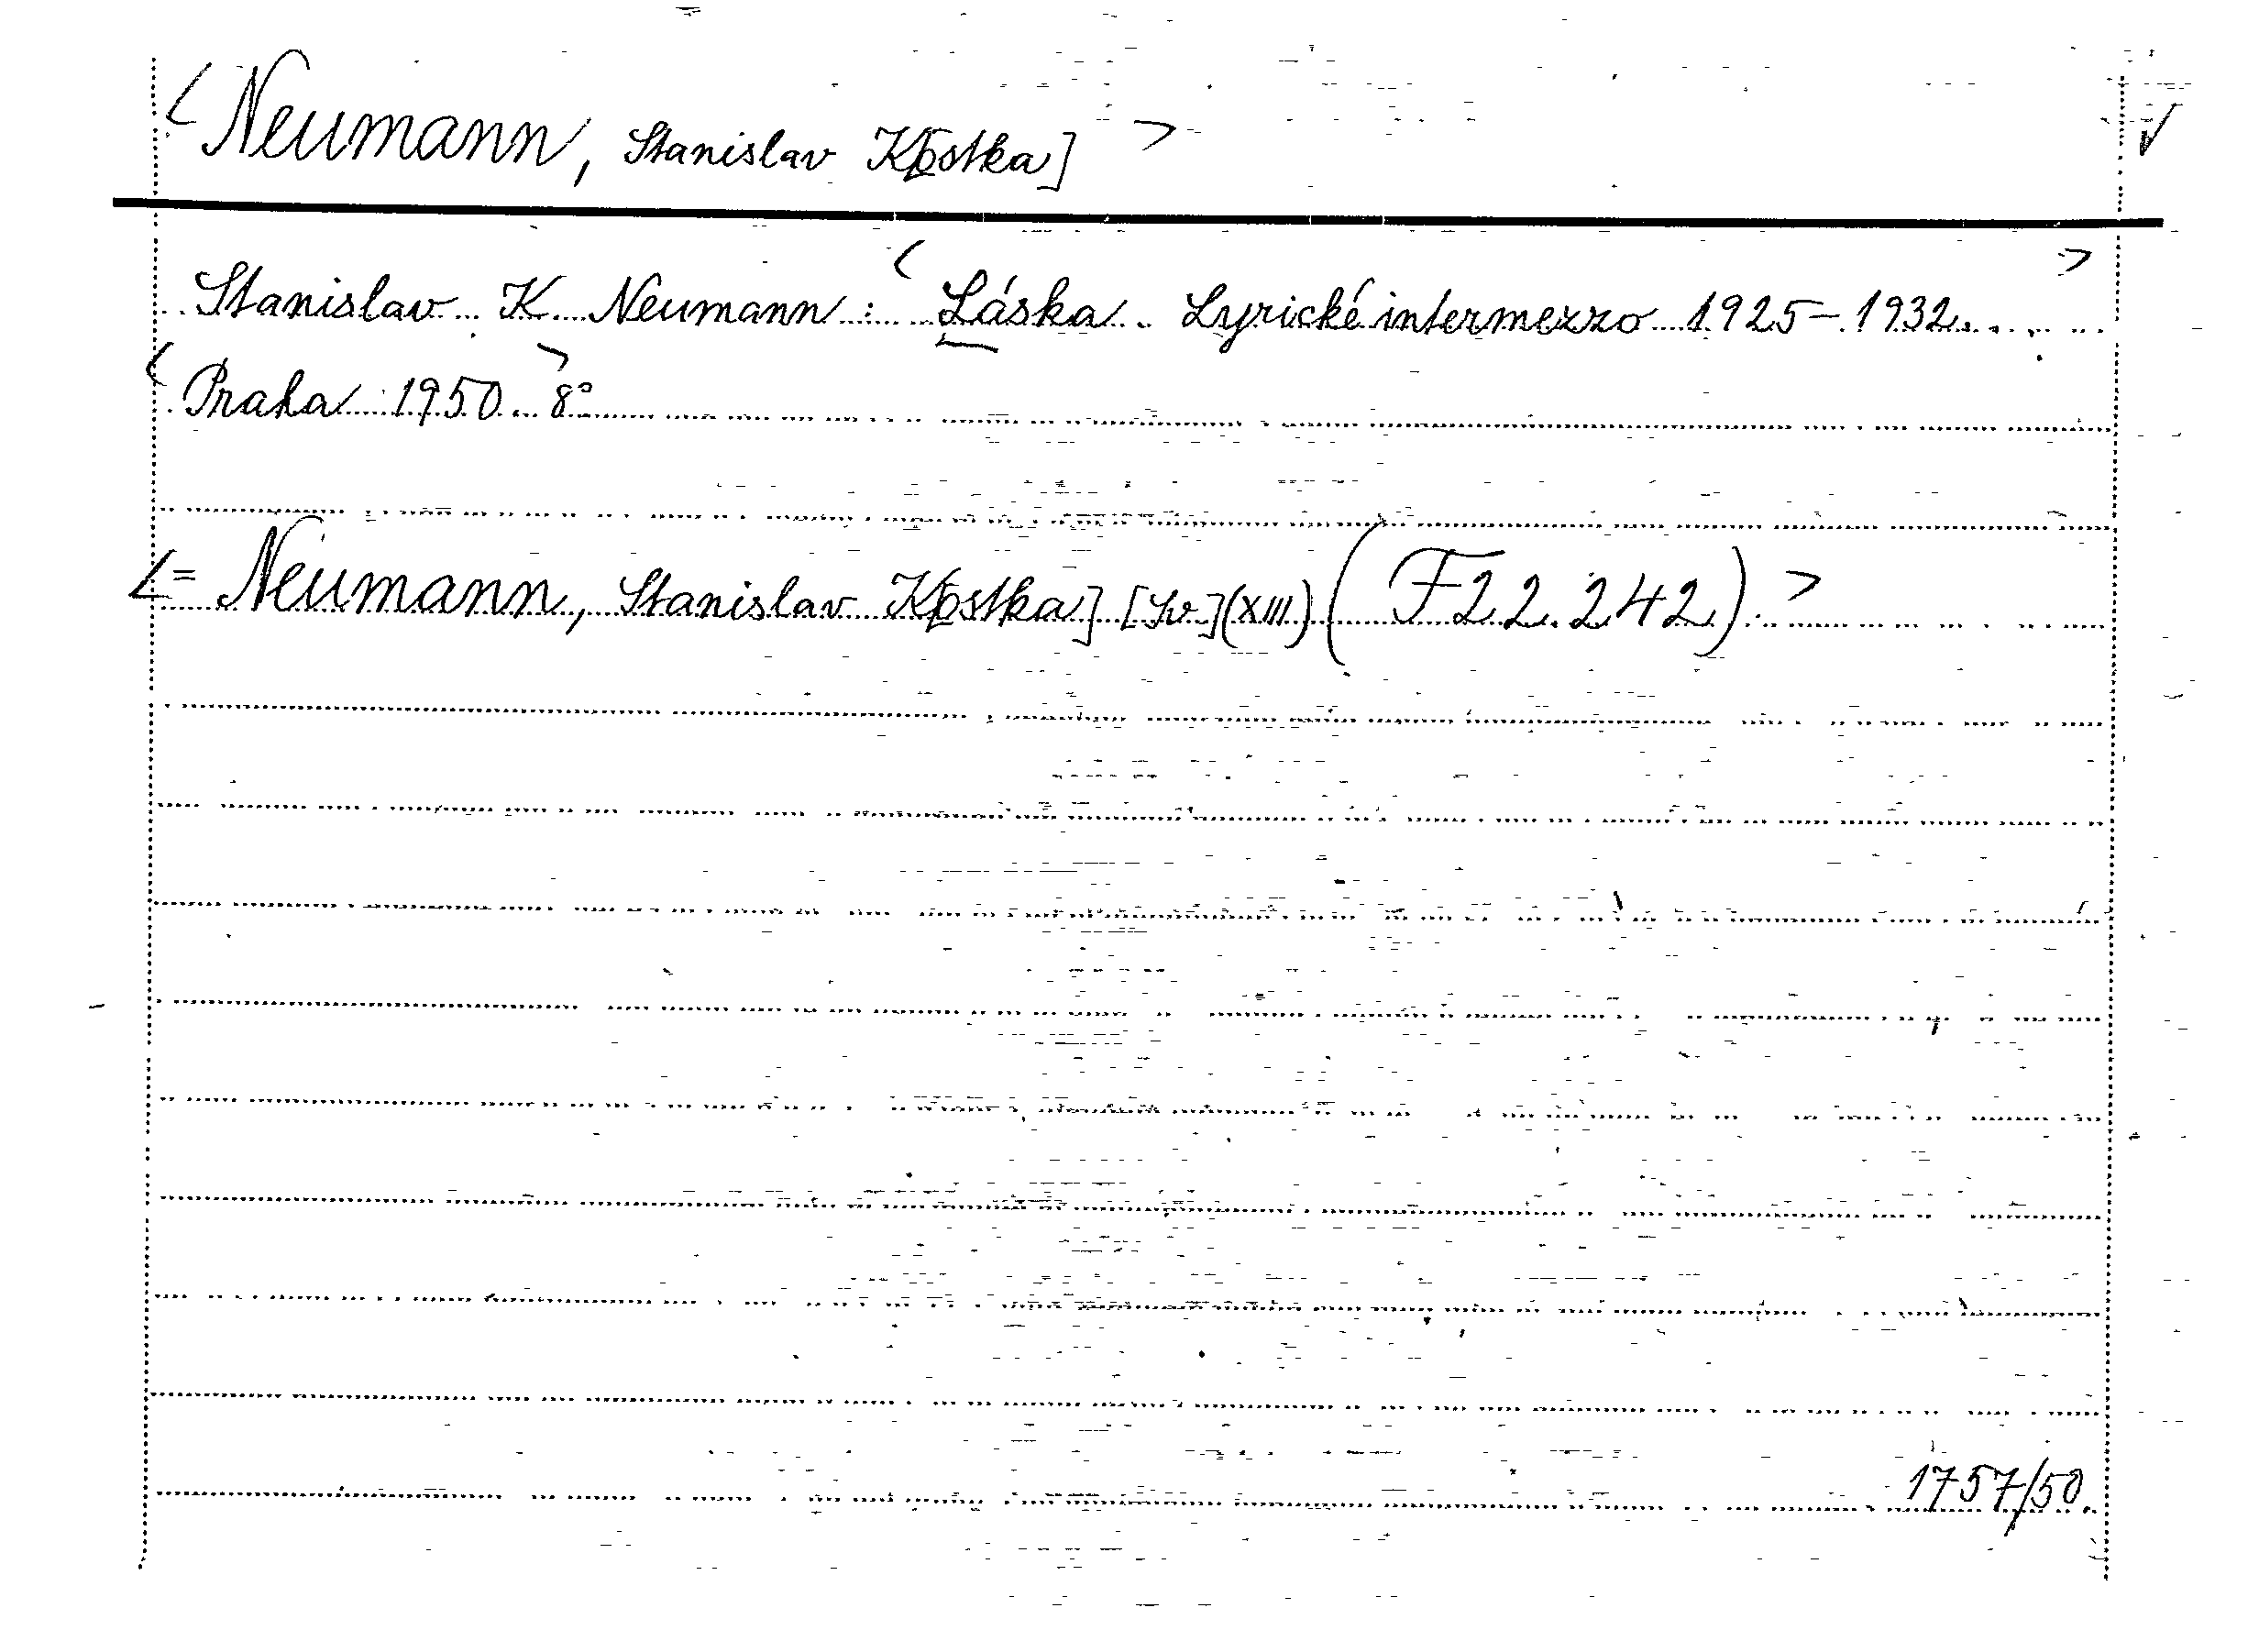 <Neumann, Stanislav K[ostka]> √
Stanislav K. Neumann: <Láska. Lyrické intermezzo 1925–1932.>
<Praha 1950.> 8°
<= Neumann, Stanislav K[ostka] [Sv.](XIII) (F22.242).>
1757/50.